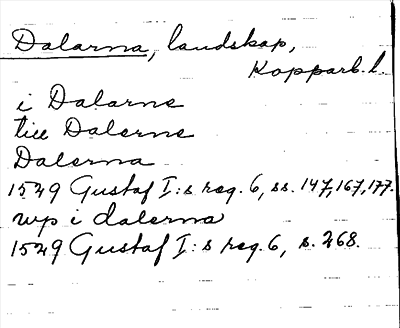 Dalarna, landskap,
Kopparb. l.
i Dalarne
till Dalerne
Dalerna
1529 Gustaf I:s reg. 6, ss. 147, 167, 177.
wp i dalerna
1529 Gustaf I:s reg. 6, s. 268.